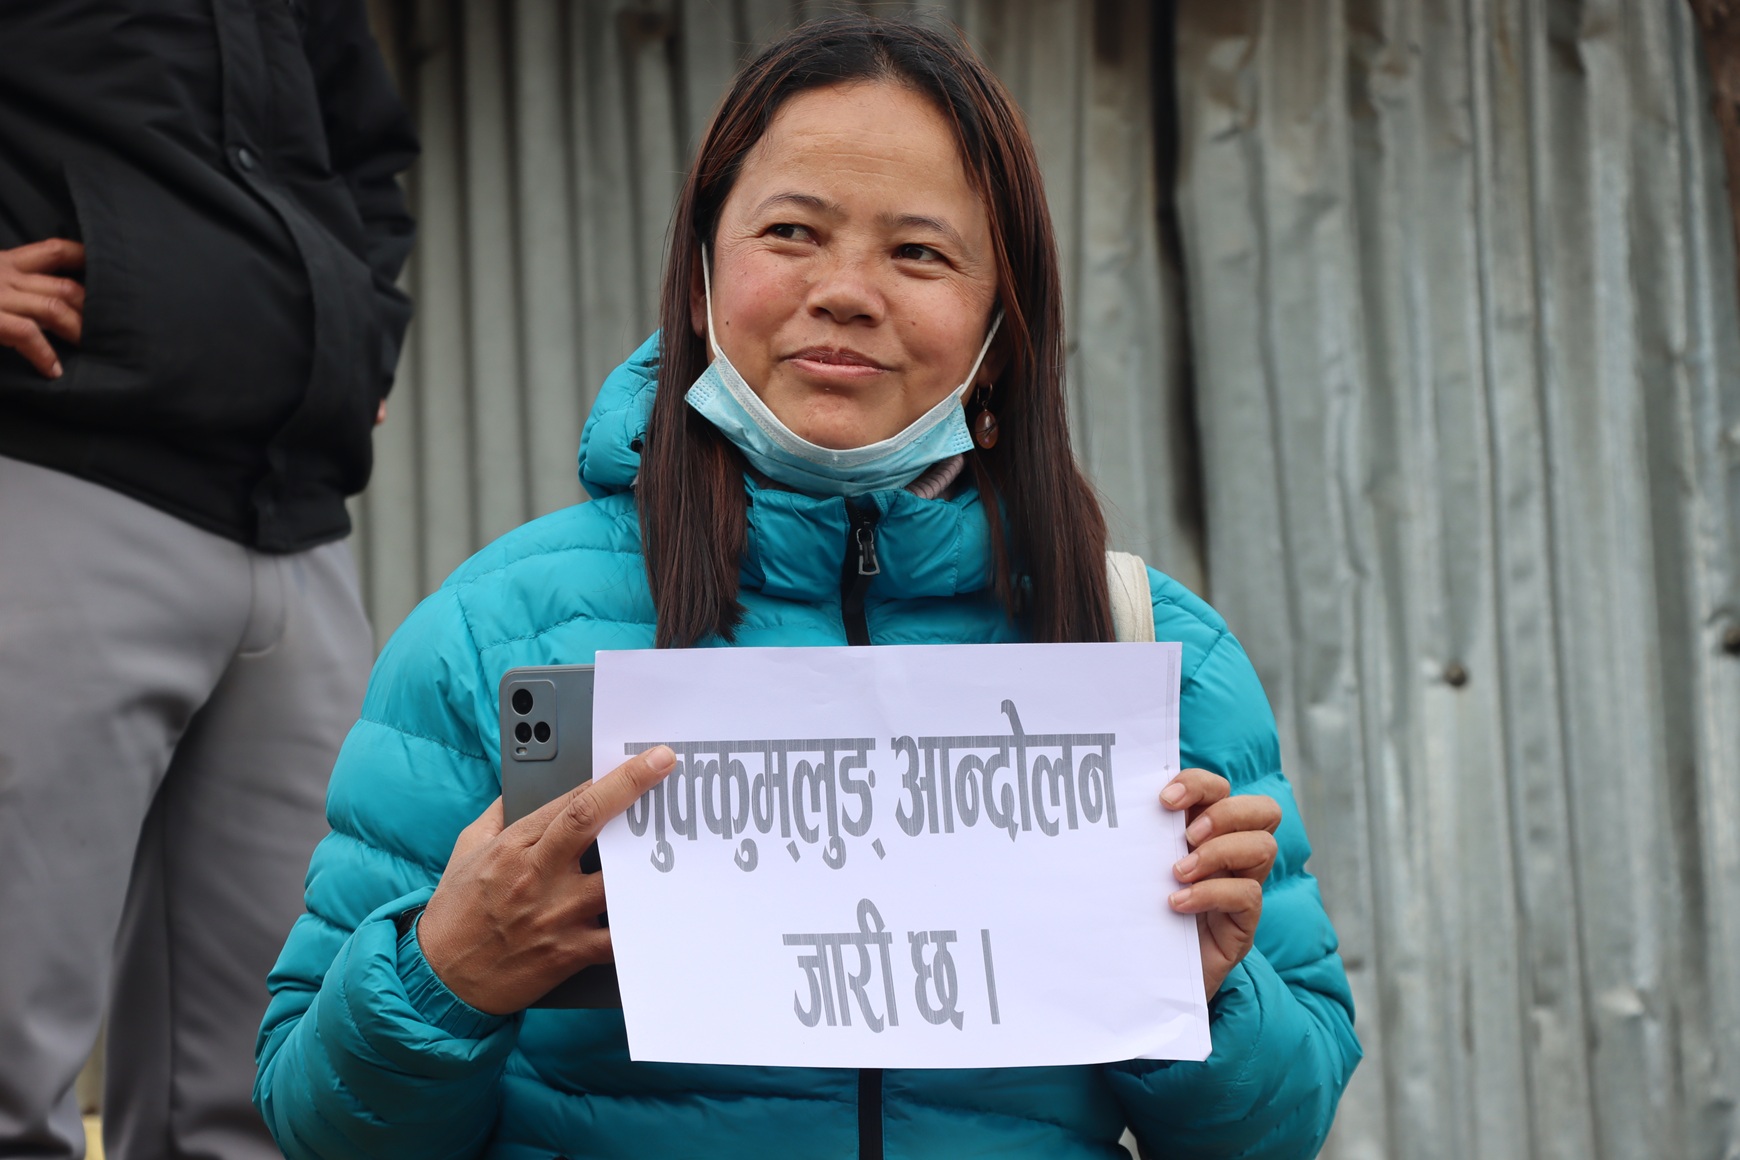 मुक्कुम्लुङ् आन्दोलन
जारी छ ।